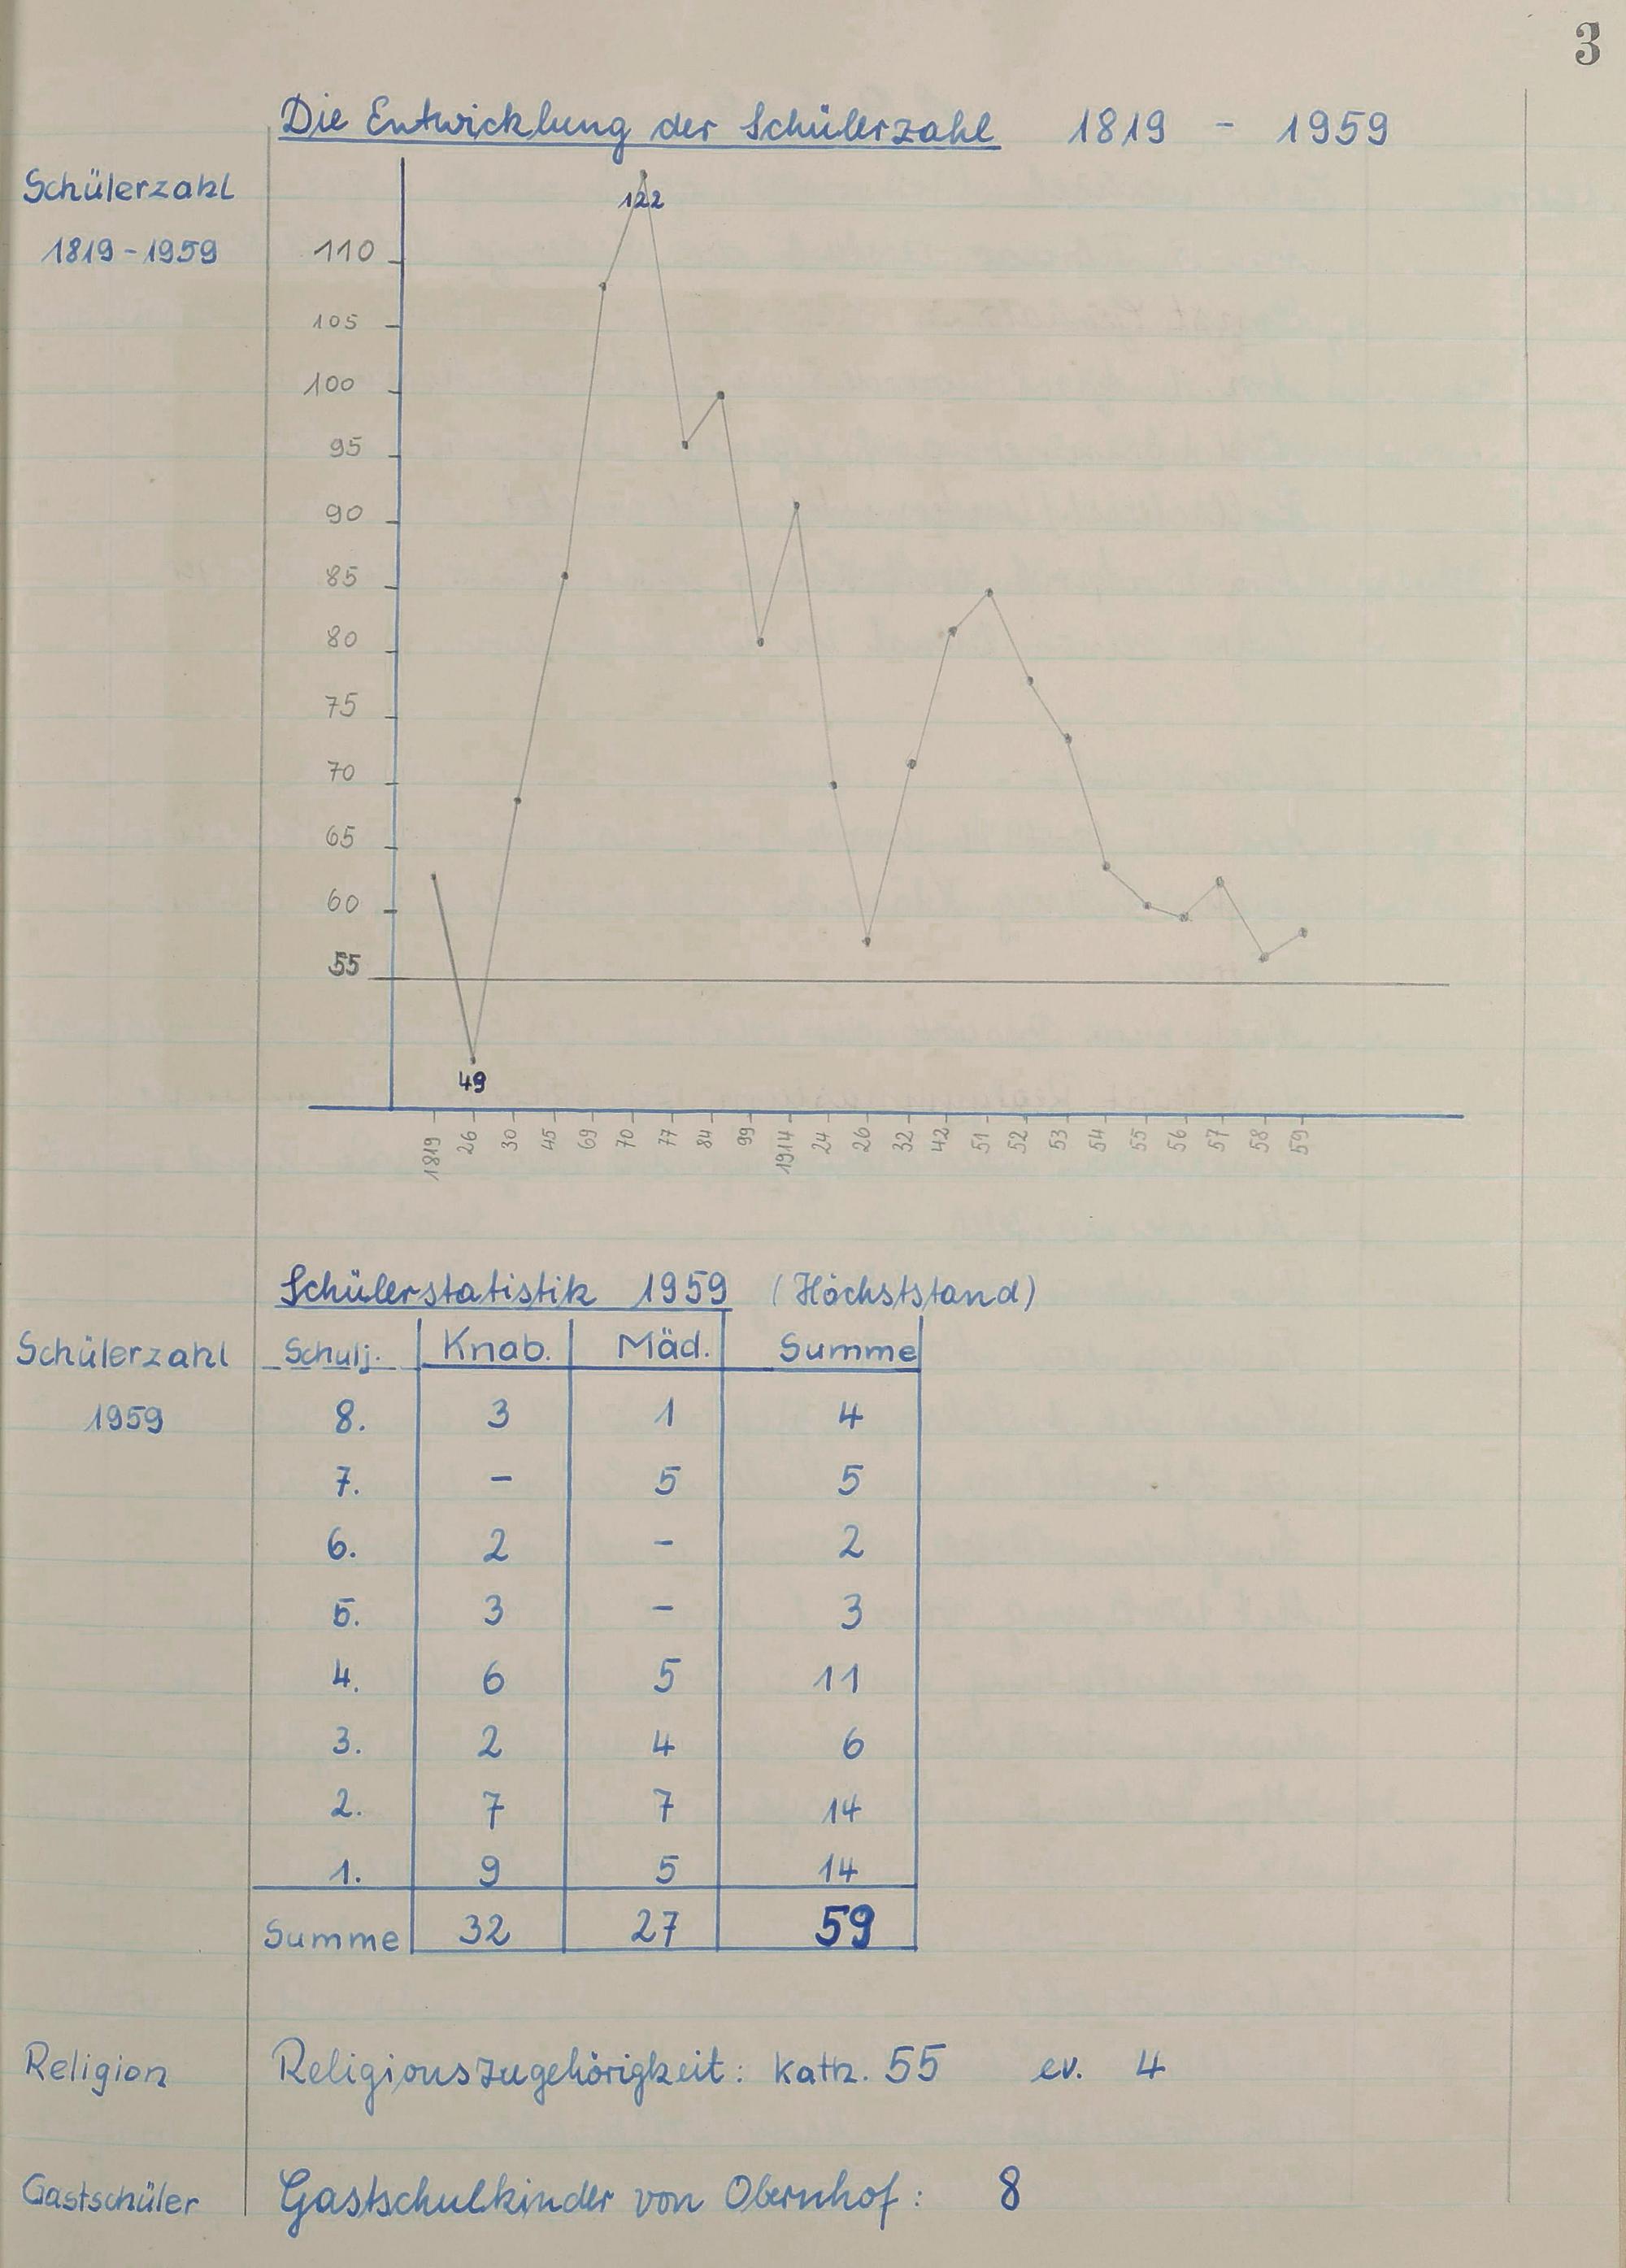 3
Die Entwicklung der Schülerzahl 1819 - 1959
Schülerzahl
1819-1959
122
110
105
100
95
90
85
80
75
70
65
60
55
49
1819 26 30 45 69 70 77 84 99 1914 24 26 32 42 51 52 53 54 55 56 57 58 59
Schülerstatistik 1959 (Höchststand)
Schülerzahl
1959
Schulj. Knab. Mäd. Summe
8. 3 1 4
7. - 5 5
6. 2 - 2
5. 3 - 3
4. 6 5 11
3. 2 4 6
2. 7 7 14
1. 9 5 14
Summe 32 27 59
Religion Religionszugehörigkeit: kath. 55 ev. 4
Gastschüler Gastschulkinder von Obernhof: 8